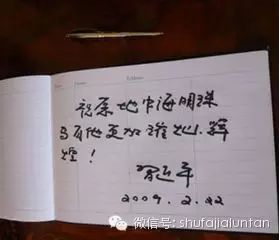 祝愿地中海明珠
马耳他更加璀灿、辉
煌！
習近平
2009.2.22
微信号: shufajialuntan